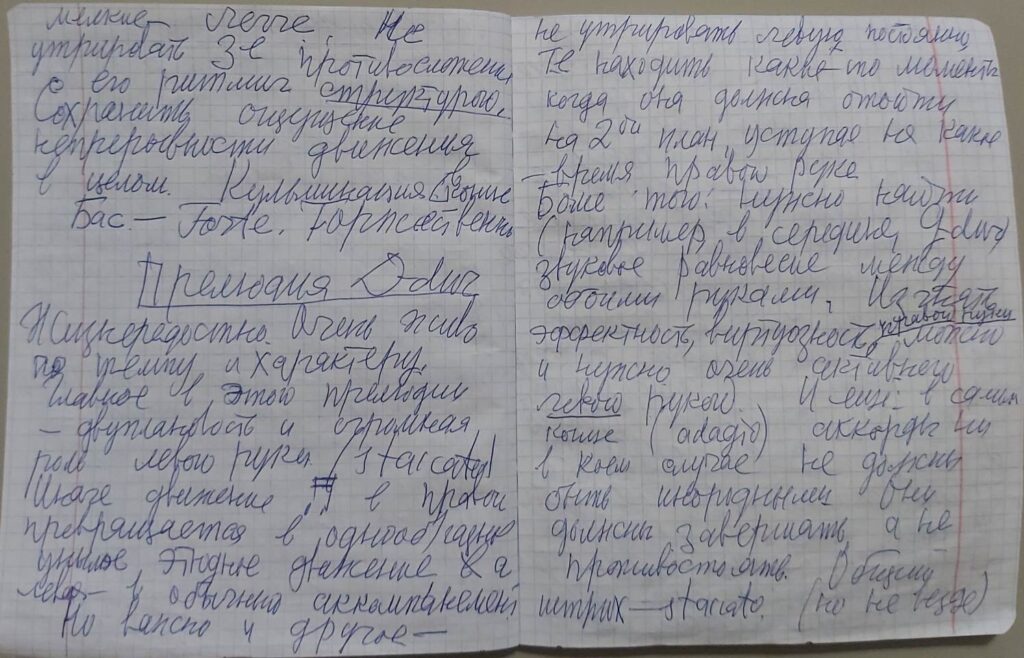 мелкие — легче. Не
утрировать 3е противосложение
с его ритмич структурою.
Сохранить ощущение
непрерывности движения
в целом. Кульминация
Бас — Тоже. Торжественно
Прелюдия D-dur
Жизнерадостно. Очень живо
по темпу и характеру.
Главное в этой прелюдии
— двуплановость и огромная
роль левой руки (staccato!)
Иначе движение в правой
превращается в однообразное
унылое, этюдное движение, а
левая — в обычный аккомпанемент
Но важно и другое —
не утрировать левую постоянно
Те находить какие-то моменты
когда она должна отойти
на 2ой план, уступая на какое
— время правой руке
Более того: нужно найти
(например, в середине, G-dur)
звуковое равновесие между
обоими руками.
эффектность, виртуозность правой руки можно
и нужно очень активной
левой рукой. И еще: в самом
конце (adagio) аккорды ни
в коем случае не должны
быть инородными Они
должны завершать, а не
противостоять. Общий
штрих — staccato. (но не везде)